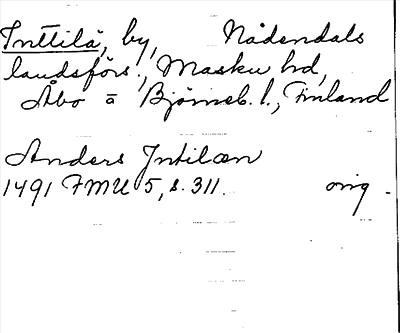 Inttilä, by, Nådendals
landsförs., Masku hd,
Åbo ō Björneb. l., Finland
Anders Intilæn
1491 FMU 5, s. 311. orig.